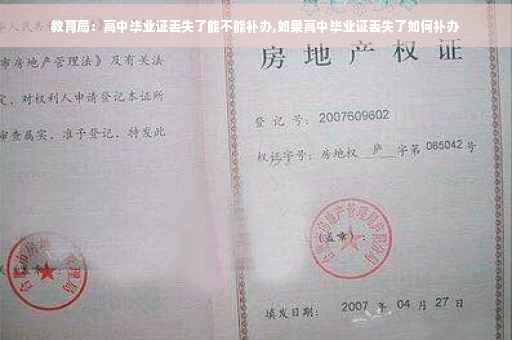 教育局：高中毕业证丢失了能不能补办,如果高中毕业证丢失了如何补办
人民共和
市房地产管理法》及有关法
定，对权利人申请登记本证所
审查属实，准予登记，特发此
房地产权证
登记号：2007609602
权证字号：房地权 庐 字第 065042 号
(盖章)：
填发日期：2007 年 04 月 27 日